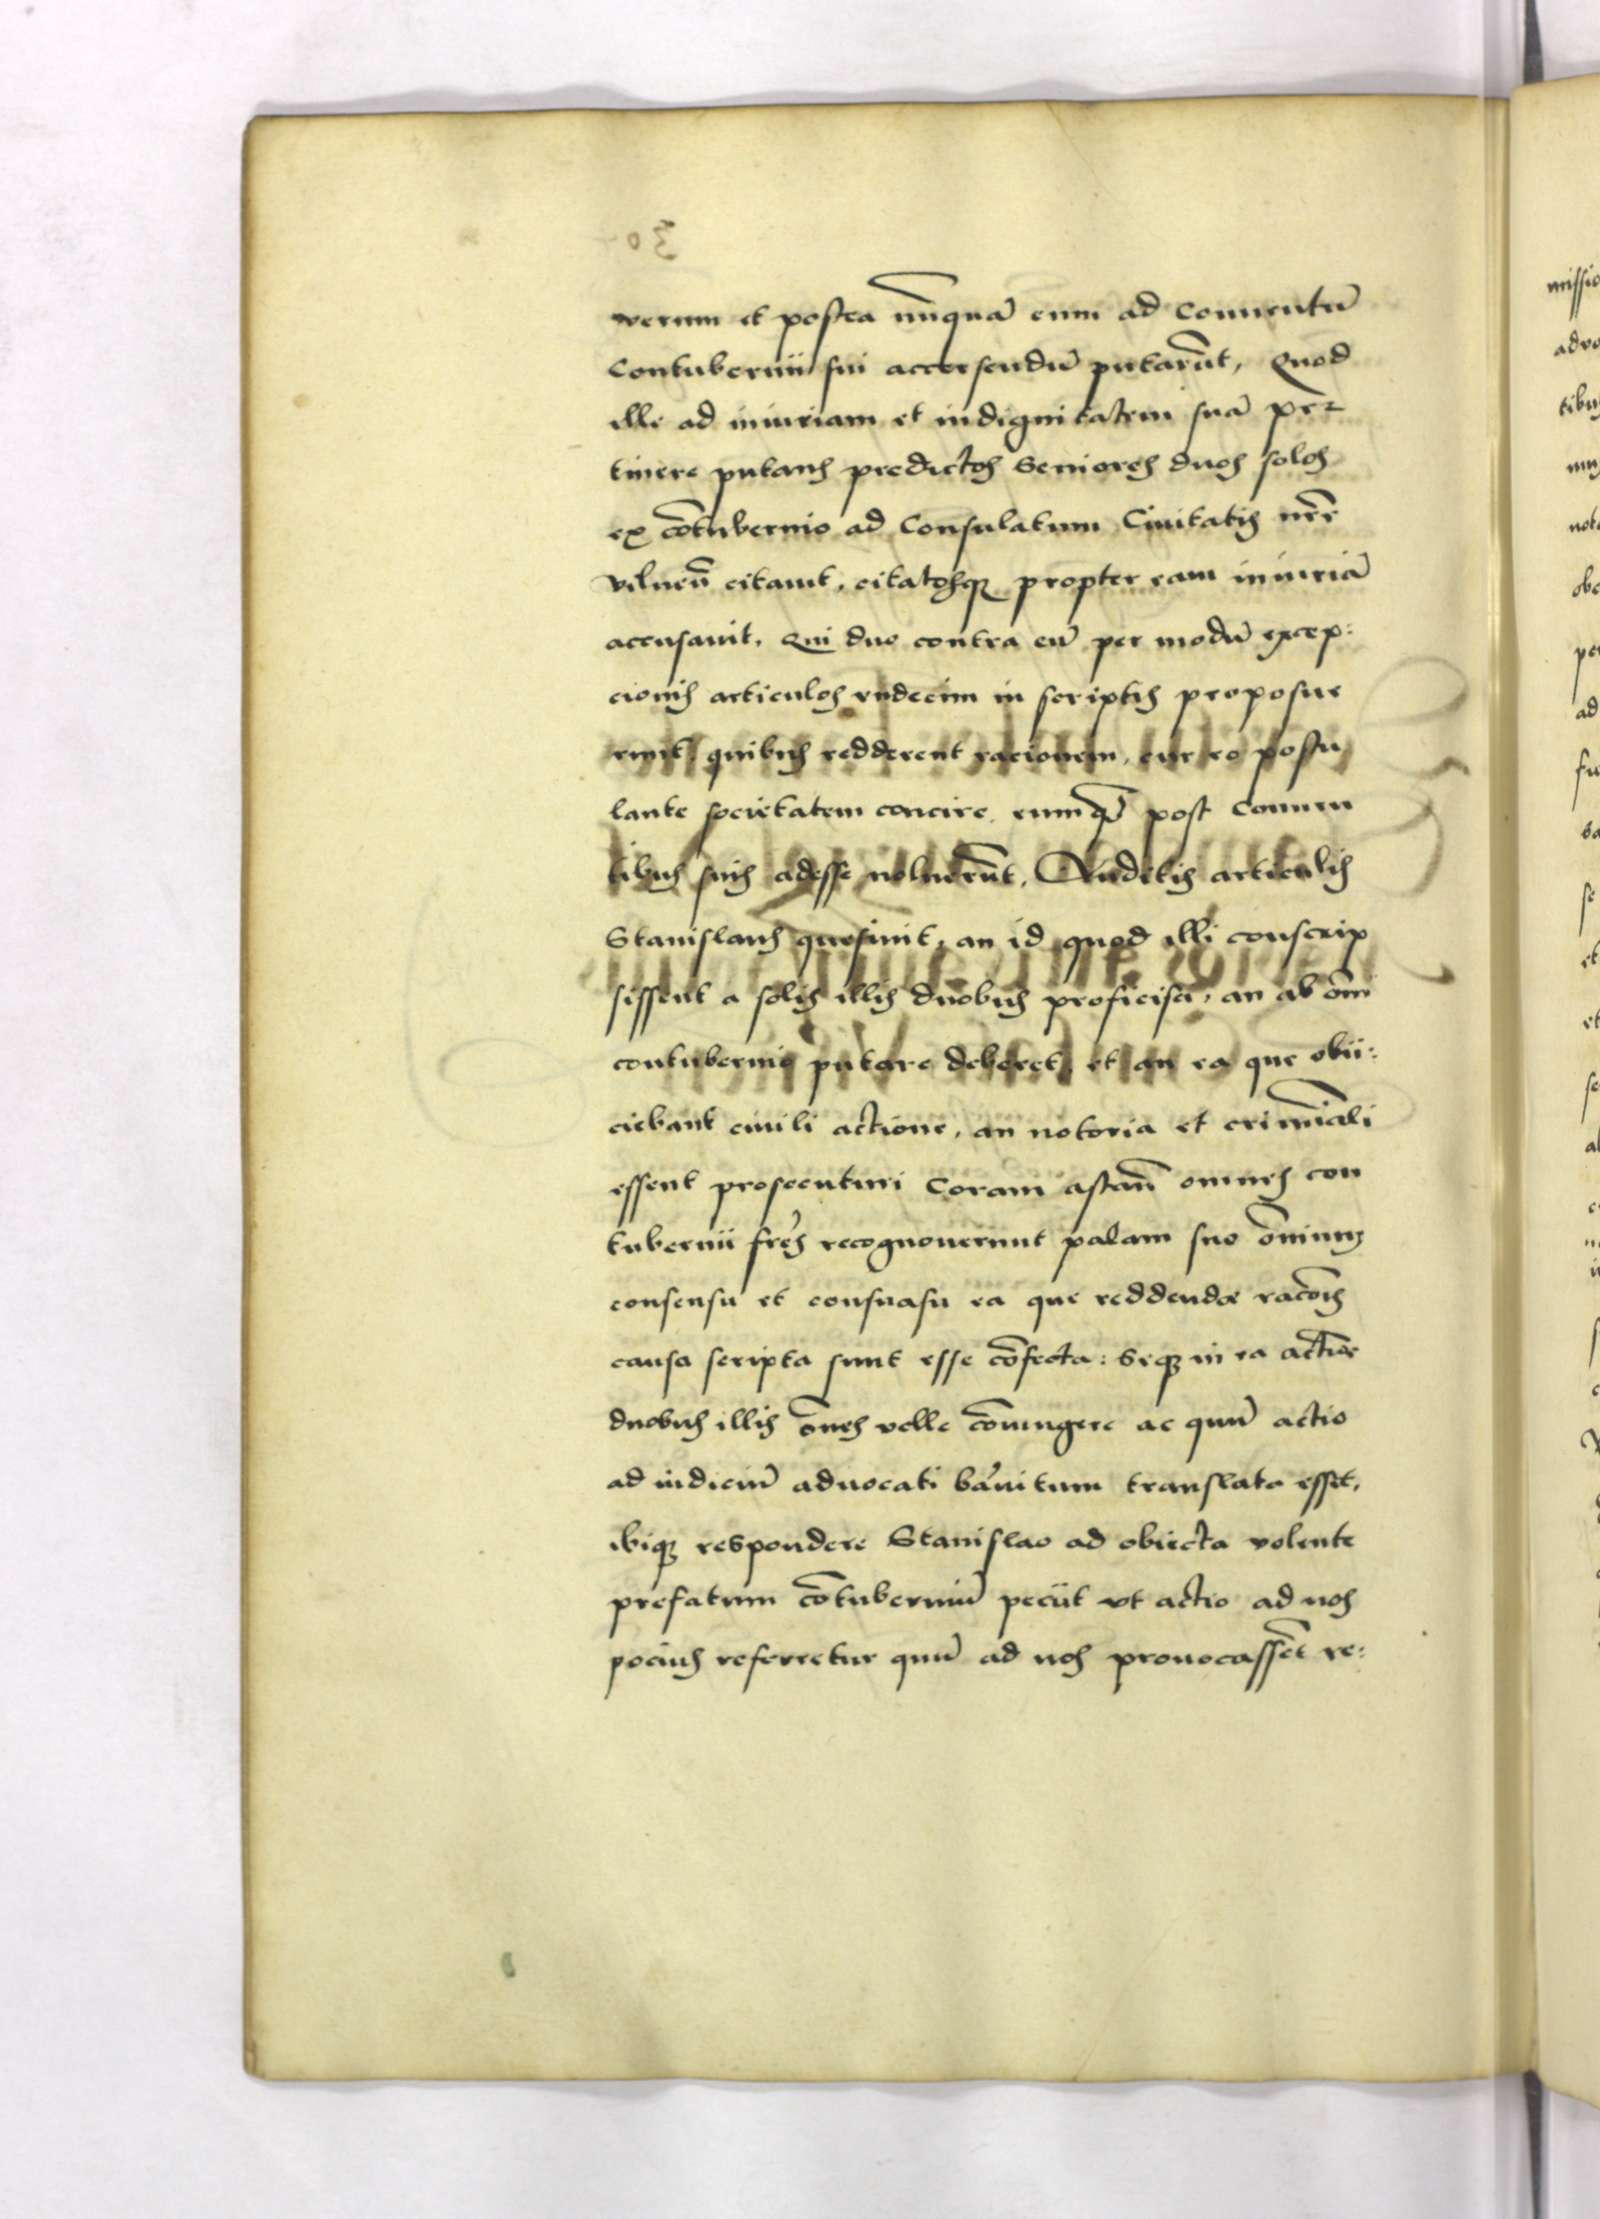 verum et postea nũquã eum ad Conuentũ
Contubernii sui accersendũ putarũt, Quod
ille ad iniuriam et indignitatem suã per
tinere putans predictos Seniores duos solos
ex cõtubernio ad Consulatum Ciuitatis nr̃e
vilneñ citauit, citatosqz propter eam iniuriã
accusauit, Qui duo contra eũ per modũ excep:
cionis articulos vndecim in scriptis proposue
runt, quibus redderent racionem, cur eo postu
lante societatem concire, eumq̃ post Conuen
tibus suis adesse noluerũt, Auditis articulis
Stanislaus quesiuit, an id quod illi conscrip
sissent a solis illis duobus proficisci, an ab õmi
contubernio putare deberet, et an ea que obii:
ciebant ciuili actione, an notoria et crimĩali
essent prosecuturi Coram astañ omnes con
tubernii frẽs recognouerunt palam suo õmium
consensu et consuasu ea que reddendæ racõis
causa scripta sunt esse cõfecta: Seqz in ea actiõe
duobus illis õnes velle cõiungere ac quũ actio
ad iudiciũ aduocati bãnitum translata esset,
ibiqz respondere Stanislao ad obiecta volente
prefatum cõtuberniũ peciit vt actio ad nos
pocius referretur quũ ad nos prouocassẽt re: